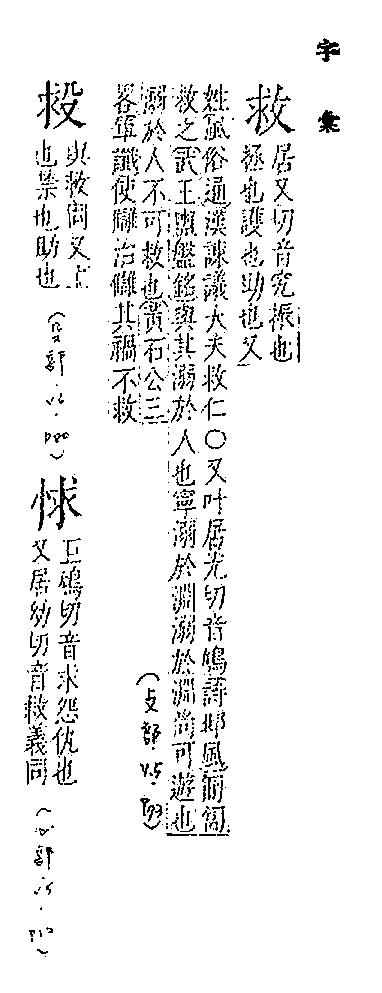 字彙
救 居又切音究振也
拯也護也助也又
姓風俗通漢諫議大夫救仁○又叶居尤切音鳩詩邶風匍匐
救之武王盥盤銘與其溺於人也寧溺於淵溺於淵尚可遊也
溺於人不可救也黃石公三
畧軍讖使讎治讎其禍不救
(攴部
殺 與救同又止
也禁也助也
(殳部
怵
切音求怨仇也
又居幼切音救義同
(心部